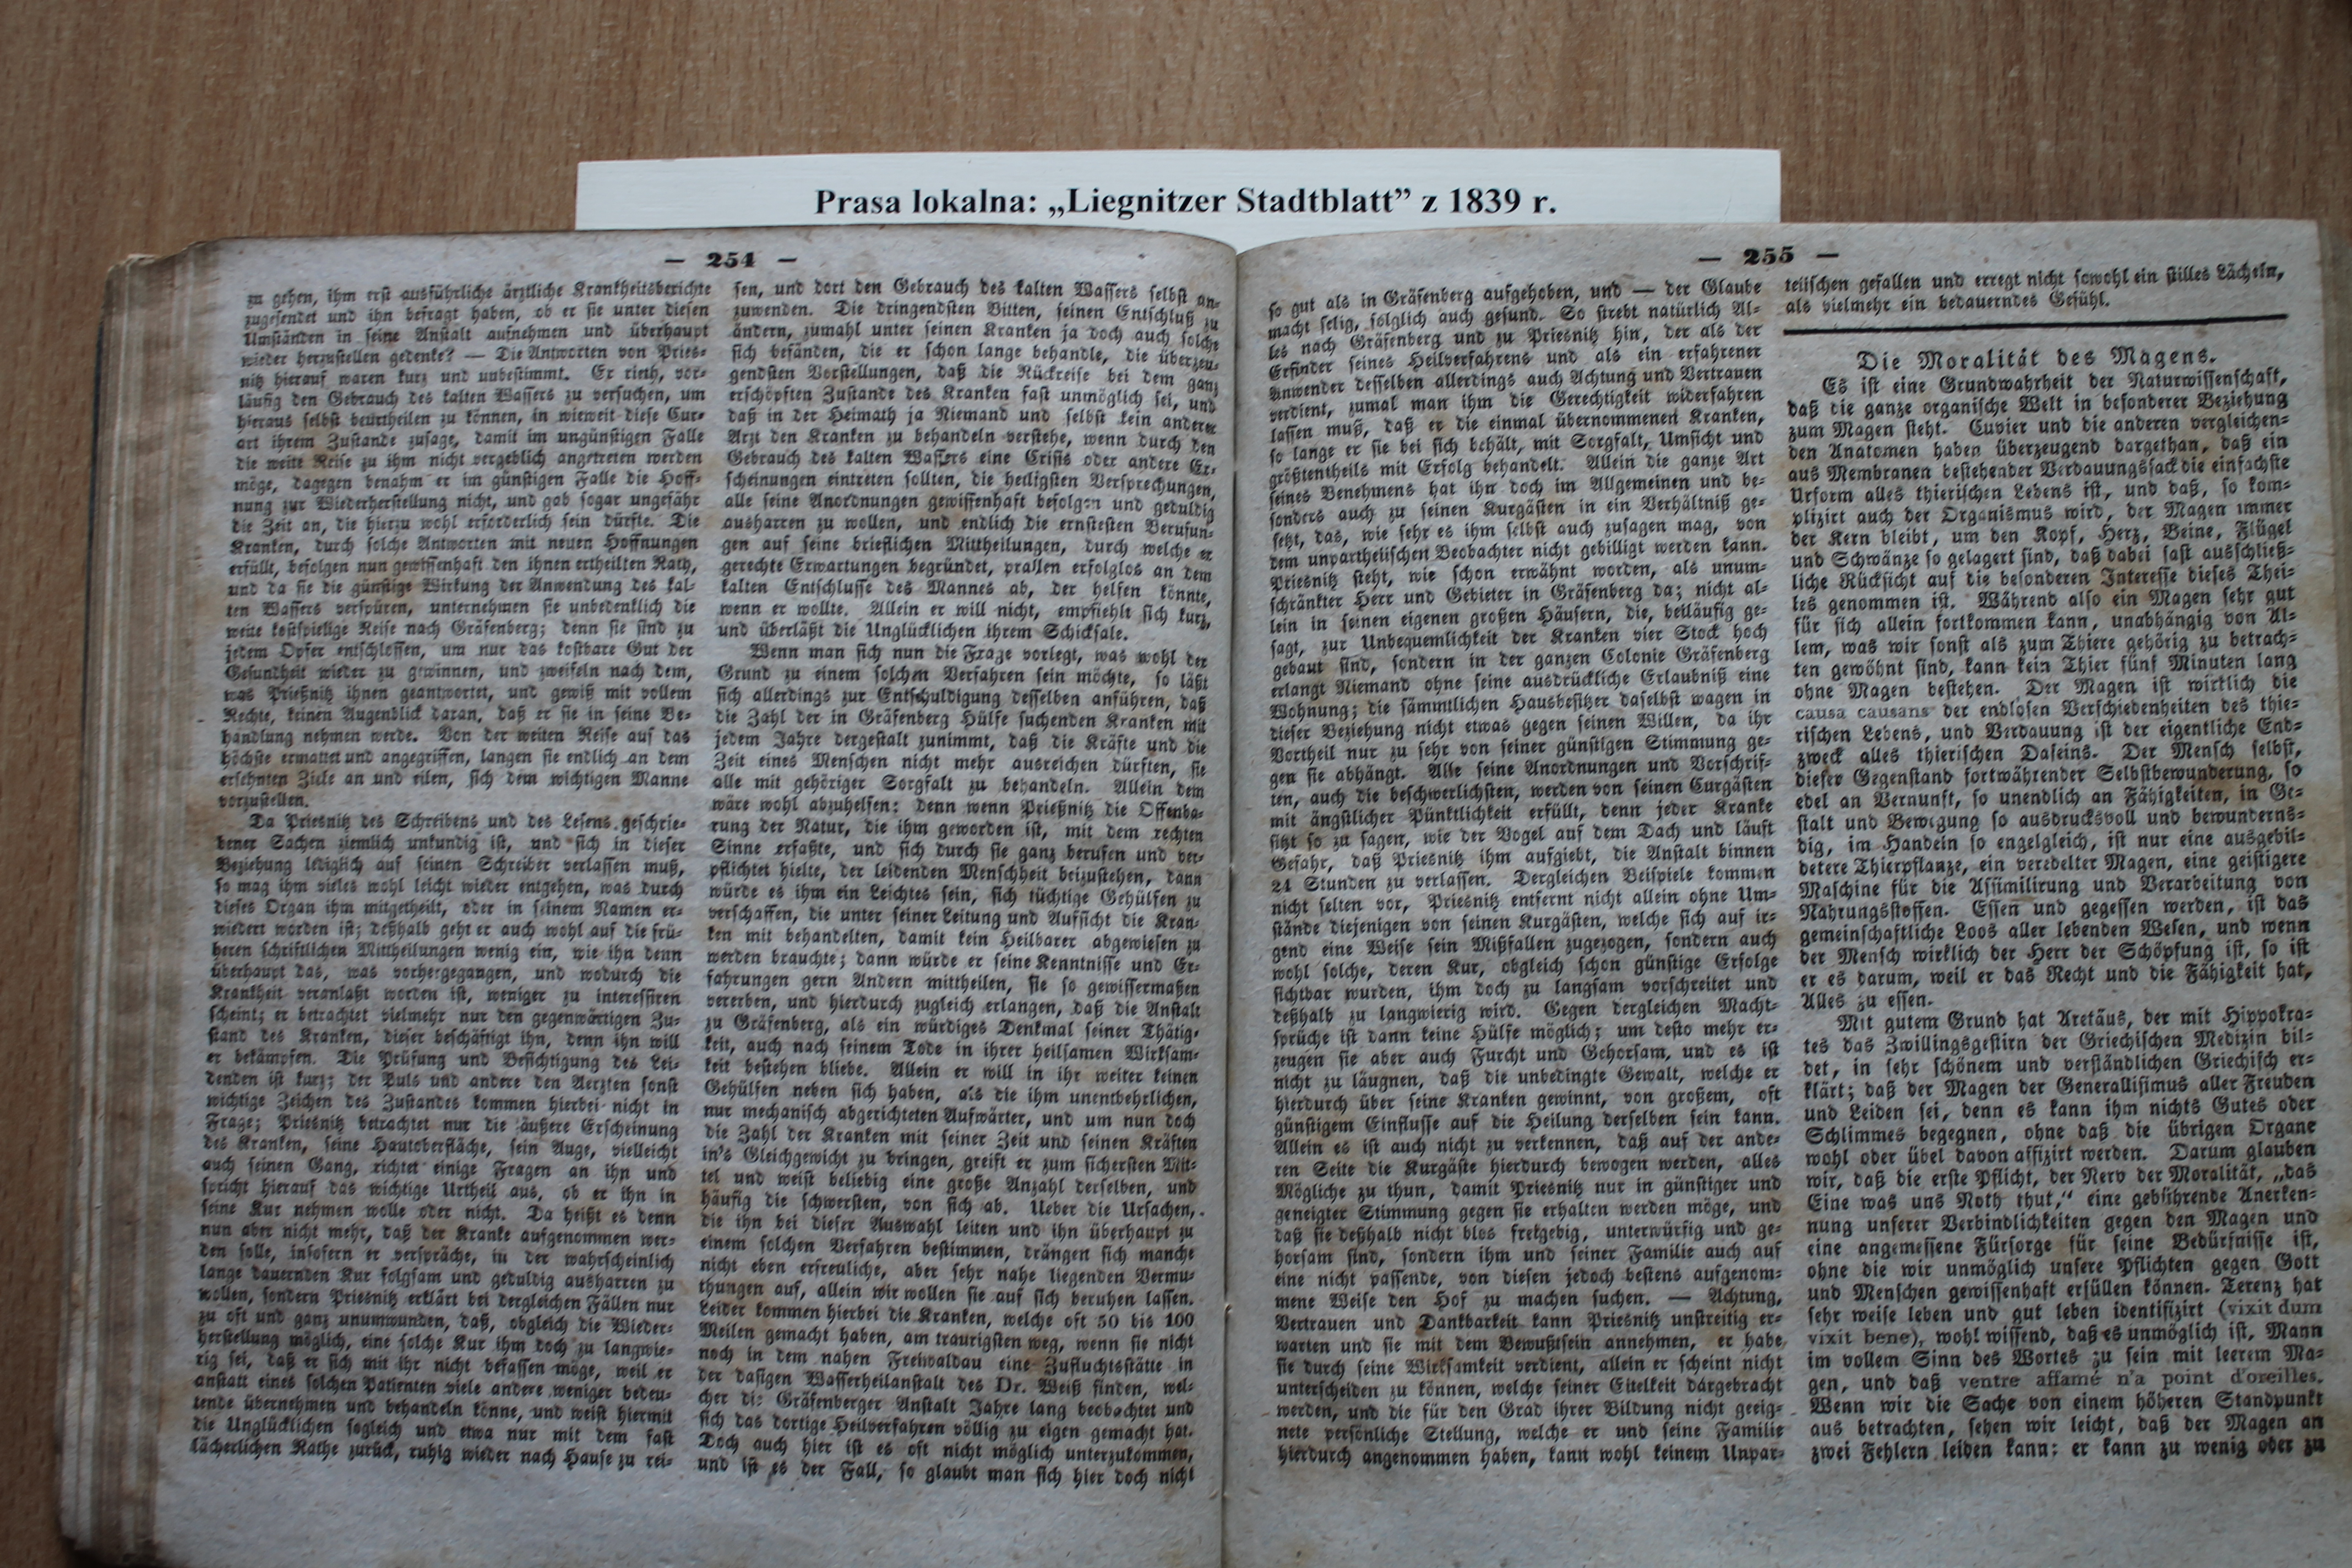 Prasa lokalna: „Liegnitzer Stadtblatt” z 1839 r.
— 254 —
zu gehen, ihm erst ausführliche ärztliche Krankheitsberichte
zugesendet und ihn befragt haben, ob er sie unter diesen
Umständen in seine Anstalt aufnehmen und überhaupt
wieder herzustellen gedenke? — Die Antworten von Pries-
nitz hierauf waren kurz und unbestimmt. Er rieth, vor-
läufig den Gebrauch des kalten Wassers zu versuchen, um
hieraus selbst beurtheilen zu können, in wieweit diese Cur-
art ihrem Zustande zusage, damit im ungünstigen Falle
die weite Reise zu ihm nicht vergeblich angetreten werden
möge, dagegen benahm er im günstigen Falle die Hoff-
nung zur Wiederherstellung nicht, und gab sogar ungefähr
die Zeit an, die hierzu wohl erforderlich sein dürfte. Die
Kranken, durch solche Antworten mit neuen Hoffnungen
erfüllt, befolgen nun gewissenhaft den ihnen ertheilten Rath,
und da sie die günstige Wirkung der Anwendung des kal-
ten Wassers verspüren, unternehmen sie unbedenklich die
weite kostspielige Reise nach Gräfenberg; denn sie sind zu
jedem Opfer entschlossen, um nur das kostbare Gut der
Gesundheit wieder zu gewinnen, und zweifeln nach dem,
was Prießnitz ihnen geantwortet, und gewiß mit vollem
Rechte, keinen Augenblick daran, daß er sie in seine Be-
handlung nehmen werde. Von der weiten Reise auf das
höchste ermattet und angegriffen, langen sie endlich an dem
ersehnten Ziele an und eilen, sich dem wichtigen Manne
vorzustellen.
Da Priesnitz des Schreibens und des Lesens geschrie-
bener Sachen ziemlich unkundig ist, und sich in dieser
Beziehung lediglich auf seinen Schreiber verlassen muß,
so mag ihm vieles wohl leicht wieder entgehen, was durch
dieses Organ ihm mitgetheilt, oder in seinem Namen er-
wiedert worden ist; deßhalb geht er auch wohl auf die frü-
heren schriftlichen Mittheilungen wenig ein, wie ihn denn
überhaupt das, was vorhergegangen, und wodurch die
Krankheit veranlaßt worden ist, weniger zu interessiren
scheint; er betrachtet vielmehr nur den gegenwärtigen Zu-
stand des Kranken, dieser beschäftigt ihn, denn ihn will
er bekämpfen. Die Prüfung und Besichtigung des Lei-
denden ist kurz; der Puls und andere den Aerzten sonst
wichtige Zeichen des Zustandes kommen hierbei nicht in
Frage; Priesnitz betrachtet nur die äußere Erscheinung
des Kranken, seine Hautoberfläche, sein Auge, vielleicht
auch seinen Gang, richtet einige Fragen an ihn und
spricht hierauf das wichtige Urtheil aus, ob er ihn in
seine Kur nehmen wolle oder nicht. Da heißt es denn
nun aber nicht mehr, daß der Kranke aufgenommen wer-
den solle, insofern er verspräche, in der wahrscheinlich
lange dauernden Kur folgsam und geduldig ausharren zu
wollen, sondern Priesnitz erklärt bei dergleichen Fällen nur
zu oft und ganz unumwunden, daß, obgleich die Wieder-
herstellung möglich, eine solche Kur ihm doch zu langwie-
rig sei, daß er sich mit ihr nicht befassen möge, weil er
anstatt eines solchen Patienten viele andere weniger bedeu-
tende übernehmen und behandeln könne, und weist hiermit
die Unglücklichen sogleich und etwa nur mit dem fast
lächerlichen Rathe zurück, ruhig wieder nach Hause zu rei-
sen, und dort den Gebrauch des kalten Wassers selbst an-
zuwenden. Die dringendsten Bitten, seinen Entschluß zu
ändern, zumahl unter seinen Kranken ja doch auch solche
sich befänden, die er schon lange behandle, die überzeu-
gendsten Vorstellungen, daß die Rückreise bei dem ganz
erschöpften Zustande des Kranken fast unmöglich sei, und
daß in der Heimath ja Niemand und selbst kein anderer
Arzt den Kranken zu behandeln verstehe, wenn durch den
Gebrauch des kalten Wassers eine Crisis oder andere Er-
scheinungen eintreten sollten, die heiligsten Versprechungen,
alle seine Anordnungen gewissenhaft befolgen und geduldig
ausharren zu wollen, und endlich die ernstesten Berufun-
gen auf seine brieflichen Mittheilungen, durch welche er
gerechte Erwartungen begründet, prallen erfolglos an dem
kalten Entschlusse des Mannes ab, der helfen könnte,
wenn er wollte. Allein er will nicht, empfiehlt sich kurz,
und überläßt die Unglücklichen ihrem Schicksale.
Wenn man sich nun die Frage vorlegt, was wohl der
Grund zu einem solchen Verfahren sein möchte, so läßt
sich allerdings zur Entschuldigung desselben anführen, daß
die Zahl der in Gräfenberg Hülfe suchenden Kranken mit
jedem Jahre dergestalt zunimmt, daß die Kräfte und die
Zeit eines Menschen nicht mehr ausreichen dürften, sie
alle mit gehöriger Sorgfalt zu behandeln. Allein dem
wäre wohl abzuhelfen: denn wenn Prießnitz die Offenba-
rung der Natur, die ihm geworden ist, mit dem rechten
Sinne erfaßte, und sich durch sie ganz berufen und ver-
pflichtet hielte, der leidenden Menschheit beizustehen, dann
würde es ihm ein Leichtes sein, sich tüchtige Gehülfen zu
verschaffen, die unter seiner Leitung und Aufsicht die Kran-
ken mit behandelten, damit kein Heilbarer abgewiesen zu
werden brauchte; dann würde er seine Kenntnisse und Er-
fahrungen gern Andern mittheilen, sie so gewissermaßen
vererben, und hierdurch zugleich erlangen, daß die Anstalt
zu Gräfenberg, als ein würdiges Denkmal seiner Thätig-
keit, auch nach seinem Tode in ihrer heilsamen Wirksam-
keit bestehen bliebe. Allein er will in ihr weiter keinen
Gehülfen neben sich haben, als die ihm unentbehrlichen,
nur mechanisch abgerichteten Aufwärter, und um nun doch
die Zahl der Kranken mit seiner Zeit und seinen Kräften
in's Gleichgewicht zu bringen, greift er zum sichersten Mit-
tel und weist beliebig eine große Anzahl derselben, und
häufig die schwersten, von sich ab. Ueber die Ursachen,
die ihn bei dieser Auswahl leiten und ihn überhaupt zu
einem solchen Verfahren bestimmen, drängen sich manche
nicht eben erfreuliche, aber sehr nahe liegenden Vermu-
thungen auf, allein wir wollen sie auf sich beruhen lassen.
Leider kommen hierbei die Kranken, welche oft 50 bis 100
Meilen gemacht haben, am traurigsten weg, wenn sie nicht
noch in dem nahen Freiwaldau eine Zufluchtsstätte in
der dasigen Wasserheilanstalt des Dr. Weiß finden, wel-
cher die Gräfenberger Anstalt Jahre lang beobachtet und
sich das dortige Heilverfahren völlig zu eigen gemacht hat.
Doch auch hier ist es oft nicht möglich unterzukommen,
und ist es der Fall, so glaubt man sich hier doch nicht
— 255 —
so gut als in Gräfenberg aufgehoben, und — der Glaube
macht selig, folglich auch gesund. So strebt natürlich Al-
les nach Gräfenberg und zu Priesnitz hin, der als der
Erfinder seines Heilverfahrens und als ein erfahrener
Anwender desselben allerdings auch Achtung und Vertrauen
verdient, zumal man ihm die Gerechtigkeit widerfahren
lassen muß, daß er die einmal übernommenen Kranken,
so lange er sie bei sich behält, mit Sorgfalt, Umsicht und
größtentheils mit Erfolg behandelt. Allein die ganze Art
seines Benehmens hat ihn doch im Allgemeinen und be-
sonders auch zu seinen Kurgästen in ein Verhältniß ge-
setzt, das, wie sehr es ihm selbst auch zusagen mag, von
dem unpartheiischen Beobachter nicht gebilligt werden kann.
Priesnitz steht, wie schon erwähnt worden, als unum-
schränkter Herr und Gebieter in Gräfenberg da; nicht al-
lein in seinen eigenen großen Häusern, die, beiläufig ge-
sagt, zur Unbequemlichkeit der Kranken vier Stock hoch
gebaut sind, sondern in der ganzen Colonie Gräfenberg
erlangt Niemand ohne seine ausdrückliche Erlaubniß eine
Wohnung; die sämmtlichen Hausbesitzer daselbst wagen in
dieser Beziehung nicht etwas gegen seinen Willen, da ihr
Vortheil nur zu sehr von seiner günstigen Stimmung ge-
gen sie abhängt. Alle seine Anordnungen und Vorschrif-
ten, auch die beschwerlichsten, werden von seinen Curgästen
mit ängstlicher Pünktlichkeit erfüllt, denn jeder Kranke
sitzt so zu sagen, wie der Vogel auf dem Dach und läuft
Gefahr, daß Priesnitz ihm aufgiebt, die Anstalt binnen
24 Stunden zu verlassen. Dergleichen Beispiele kommen
nicht selten vor, Priesnitz entfernt nicht allein ohne Um-
stände diejenigen von seinen Kurgästen, welche sich auf ir-
gend eine Weise sein Mißfallen zugezogen, sondern auch
wohl solche, deren Kur, obgleich schon günstige Erfolge
sichtbar wurden, ihm doch zu langsam vorschreitet und
deßhalb zu langwierig wird. Gegen dergleichen Macht-
sprüche ist dann keine Hülfe möglich; um desto mehr er-
zeugen sie aber auch Furcht und Gehorsam, und es ist
nicht zu läugnen, daß die unbedingte Gewalt, welche er
hierdurch über seine Kranken gewinnt, von großem, oft
günstigem Einflusse auf die Heilung derselben sein kann.
Allein es ist auch nicht zu verkennen, daß auf der ande-
ren Seite die Kurgäste hierdurch bewogen werden, alles
Mögliche zu thun, damit Priesnitz nur in günstiger und
geneigter Stimmung gegen sie erhalten werden möge, und
daß sie deßhalb nicht blos freigebig, unterwürfig und ge-
horsam sind, sondern ihm und seiner Familie auch auf
eine nicht passende, von diesen jedoch bestens aufgenom-
mene Weise den Hof zu machen suchen. — Achtung,
Vertrauen und Dankbarkeit kann Priesnitz unstreitig er-
warten und sie mit dem Bewußtsein annehmen, er habe
sie durch seine Wirksamkeit verdient, allein er scheint nicht
unterscheiden zu können, welche seiner Eitelkeit dargebracht
werden, und die für den Grad ihrer Bildung nicht geeig-
nete persönliche Stellung, welche er und seine Familie
hierdurch angenommen haben, kann wohl keinem Unpar-
teiischen gefallen und erregt nicht sowohl ein stilles Lächeln,
als vielmehr ein bedauerndes Gefühl.
Die Moralität des Magens.
Es ist eine Grundwahrheit der Naturwissenschaft,
daß die ganze organische Welt in besonderer Beziehung
zum Magen steht. Cuvier und die anderen vergleichen-
den Anatomen haben überzeugend dargethan, daß ein
aus Membranen bestehender Verdauungssack die einfachste
Urform alles thierischen Lebens ist, und daß, so kom-
plizirt auch der Organismus wird, der Magen immer
der Kern bleibt, um den Kopf, Herz, Beine, Flügel
und Schwänze so gelagert sind, daß dabei fast ausschließ-
liche Rücksicht auf die besonderen Interesse dieses Thei-
les genommen ist. Während also ein Magen sehr gut
für sich allein fortkommen kann, unabhängig von Al-
lem, was wir sonst als zum Thiere gehörig zu betrach-
ten gewöhnt sind, kann kein Thier fünf Minuten lang
ohne Magen bestehen. Der Magen ist wirklich die
causa causans der endlosen Verschiedenheiten des thie-
rischen Lebens, und Verdauung ist der eigentliche End-
zweck alles thierischen Daseins. Der Mensch selbst,
dieser Gegenstand fortwährender Selbstbewunderung, so
edel an Vernunft, so unendlich an Fähigkeiten, in Ge-
stalt und Bewegung so ausdrucksvoll und bewunderns-
dig, im Handeln so engelgleich, ist nur eine ausgebil-
detere Thierpflanze, ein veredelter Magen, eine geistigere
Maschine für die Assimilirung und Verarbeitung von
Nahrungsstoffen. Essen und gegessen werden, ist das
gemeinschaftliche Loos aller lebenden Wesen, und wenn
der Mensch wirklich der Herr der Schöpfung ist, so ist
er es darum, weil er das Recht und die Fähigkeit hat,
Alles zu essen.
Mit gutem Grund hat Aretäus, der mit Hippokra-
tes das Zwillingsgestirn der Griechischen Medizin bil-
det, in sehr schönem und verständlichen Griechisch er-
klärt; daß der Magen der Generallisimus aller Freuden
und Leiden sei, denn es kann ihm nichts Gutes oder
Schlimmes begegnen, ohne daß die übrigen Organe
wohl oder übel davon affizirt werden. Darum glauben
wir, daß die erste Pflicht, der Nerv der Moralität, „das
Eine was uns Noth thut,“ eine gebührende Anerken-
nung unserer Verbindlichkeiten gegen den Magen und
eine angemessene Fürsorge für seine Bedürfnisse ist,
ohne die wir unmöglich unsere Pflichten gegen Gott
und Menschen gewissenhaft erfüllen können. Terenz hat
sehr weise leben und gut leben identifizirt (vixit dum
vixit bene), wohl wissend, daß es unmöglich ist, Mann
im vollem Sinn des Wortes zu sein mit leerem Ma-
gen, und daß ventre affamé n'a point d'oreilles.
Wenn wir die Sache von einem höheren Standpunkt
aus betrachten, sehen wir leicht, daß der Magen an
zwei Fehlern leiden kann: er kann zu wenig oder zu